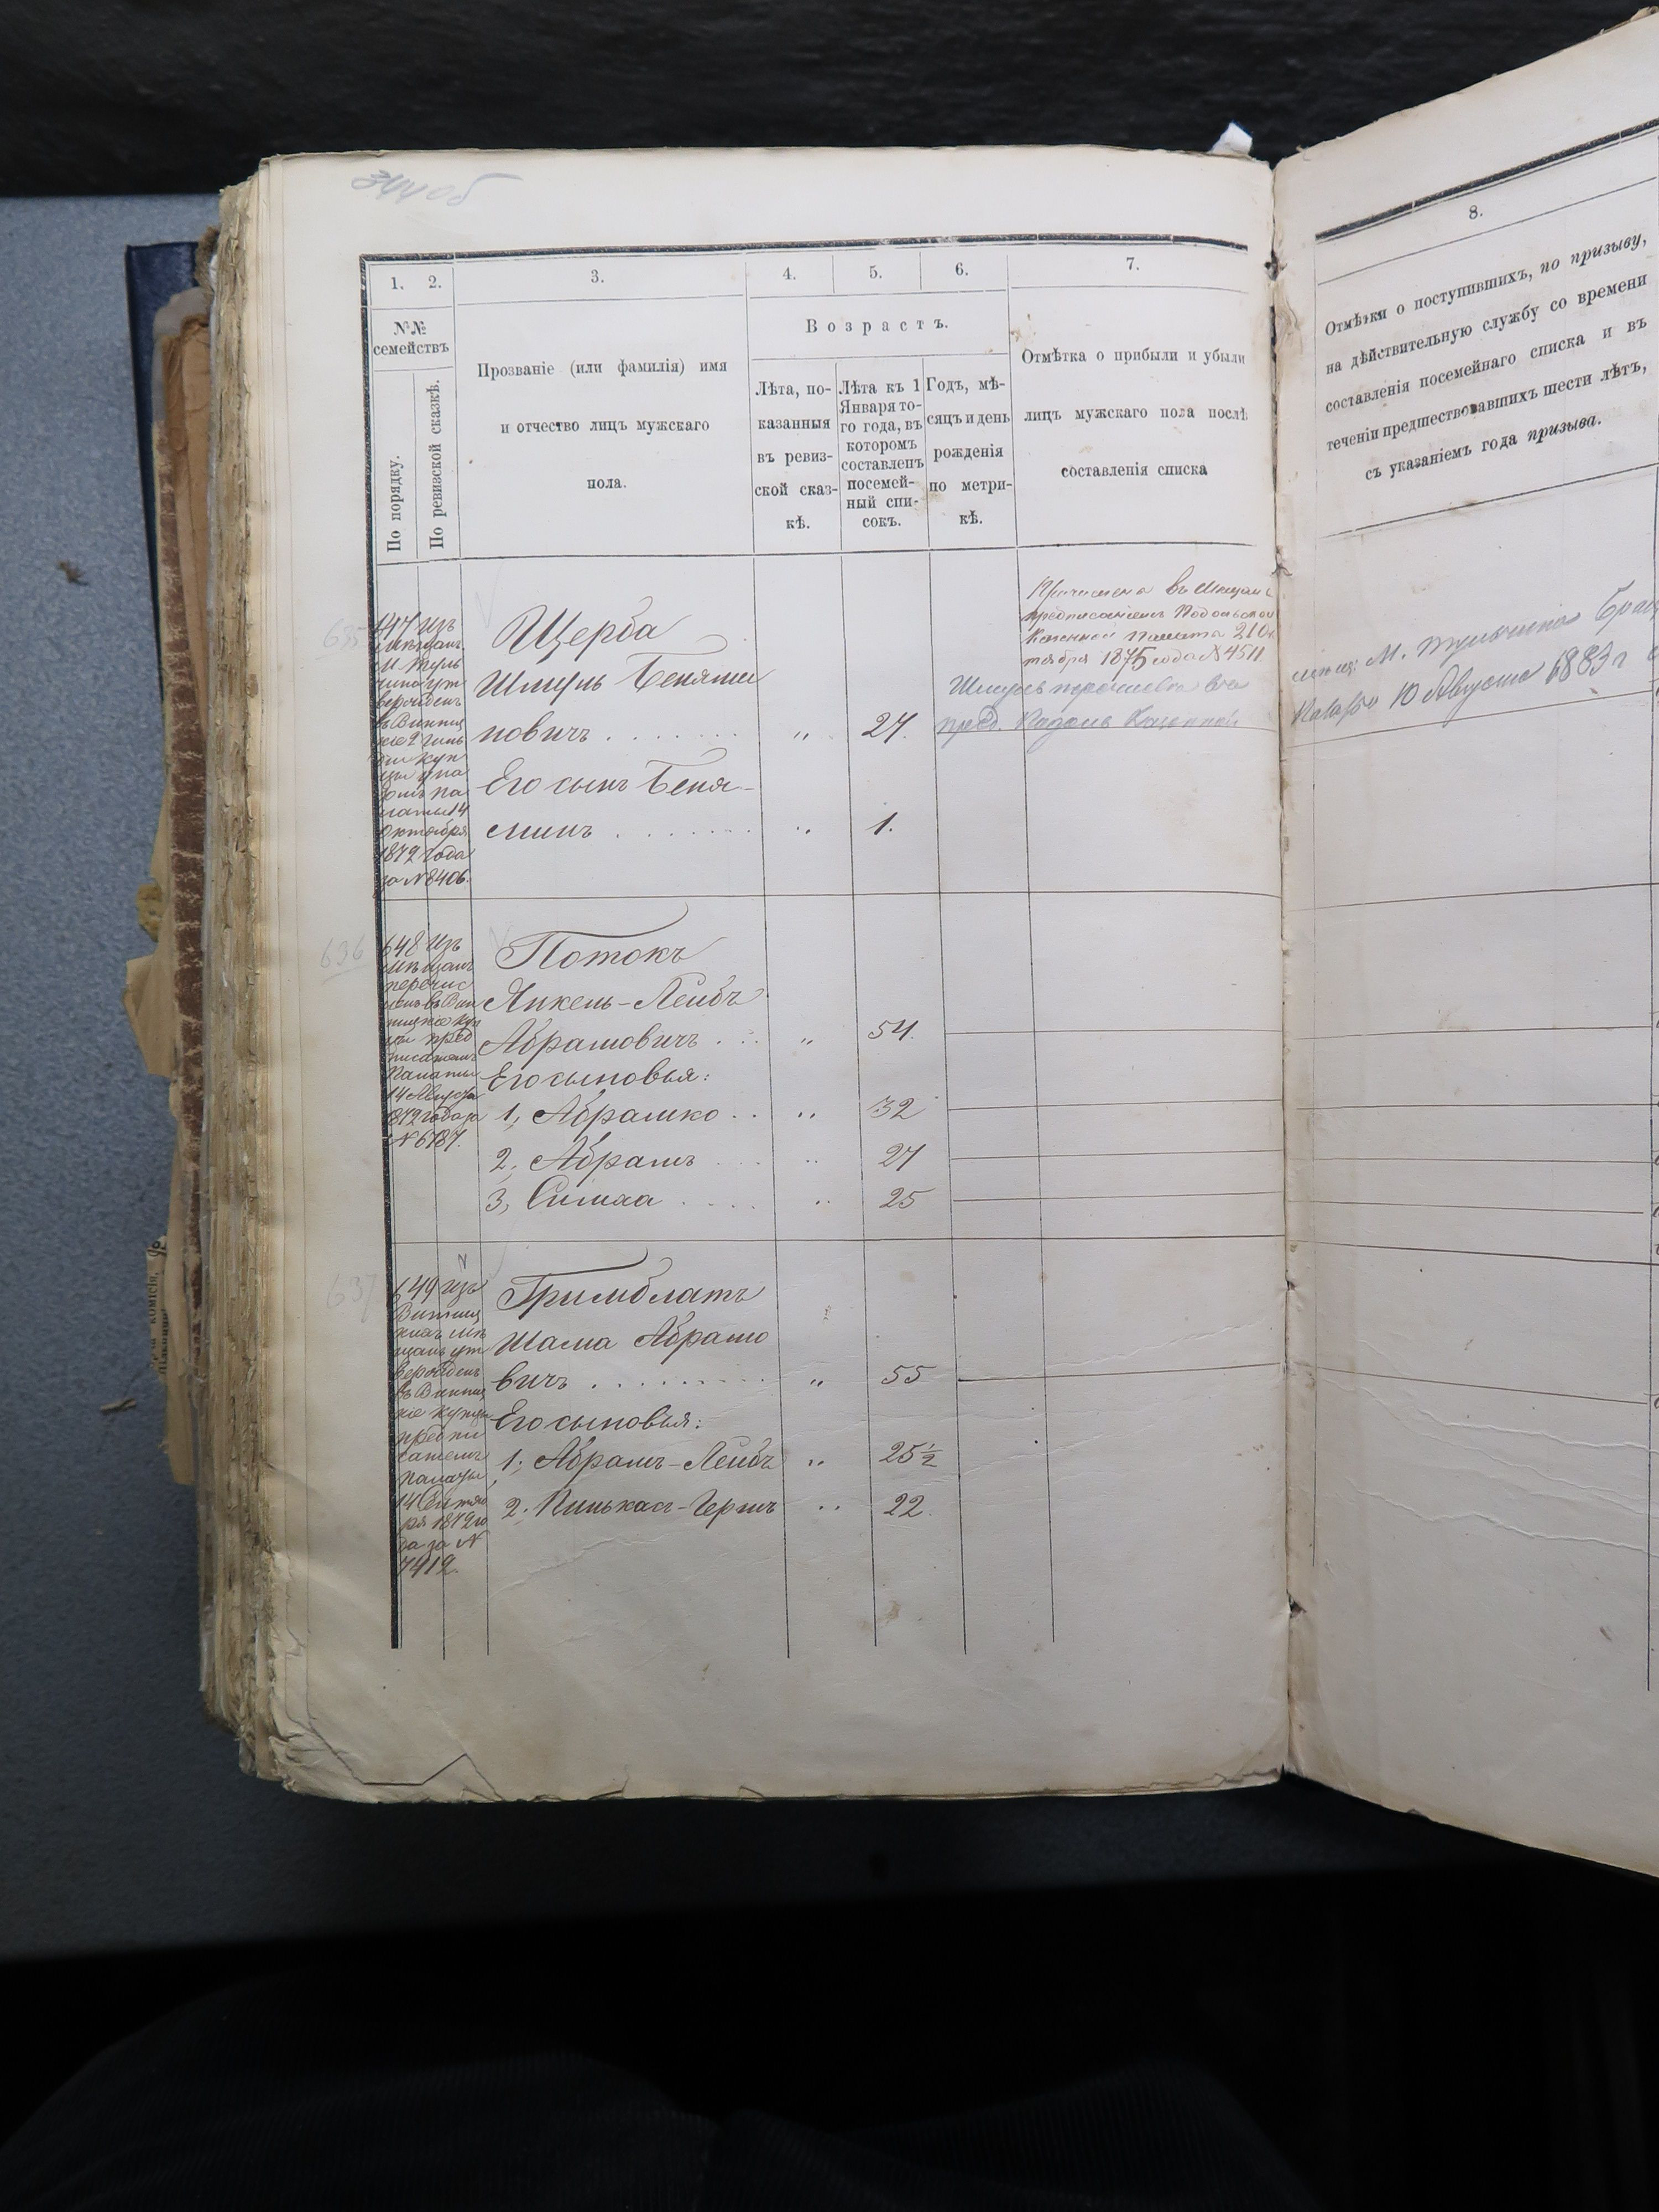 344 об
1.
2.
3.
4.
5.
6.
7.
№№
семействъ
По порядку.
По ревизской сказкѣ.
Прозваніе (или фамилія) имя
и отчество лицъ мужскаго
пола.
Возрастъ.
Лѣта, по-
казанныя
въ ревиз-
ской сказ-
кѣ.
Лѣта къ 1
Января то-
го года, въ
которомъ
составленъ
посемей-
ный спи-
сокъ.
Годъ, мѣ-
сяцъ и день
рожденія
по метри-
кѣ.
Отмѣтка о прибыли и убыли
лицъ мужскаго пола послѣ
составленія списка
635
изъ
мѣщанъ
м. Туль
чина ут
вержденъ
въ Винниц
кіе 2 гиль
діи куп
цы ука
зомъ Па
латы 14
Октября
1872 года
за № 8406.
Щерба
Шмуль Бенями
новичъ . . . . . . . „ 27.
Его сынъ Беня-
минъ . . . . . . . „ 1.
въ Мещане
предписаніемъ Подольской
Казенной Палаты 21 Ок
тября 1875 года № 4511.
Шмуль перечисленъ въ
пред. Подоль Казенной
636
648 Изъ
мѣщанъ
перечис
ленъ въ Вин
ницкіе куп
цы пред
писаніемъ
Палаты
14 Августа
1872 года за
№ 6787.
Потокъ
Янкель-Лейбъ
Абрамовичъ . . . „ 54.
Его сыновья:
1, Абрамко . . „ 32
2, Абрамъ . . . „ 27
3, Симха . . . . „ 25
637
649 изъ
Винниц
кихъ мѣ
щанъ ут
вержденъ
въ Винниц
кіе купцы
предпи
саніемъ
Палаты
14 Сентяб
ря 1872 го
да за №
7412.
Гримблатъ
Шама Абрамо
вичъ . . . . . . . . „ 55
Его сыновья:
1; Абрамъ-Лейбъ „ 25½
2. Пинькас-Гершъ „ 22.
8.
Отмѣтки о поступившихъ, по призыву,
на дѣйствительную службу со времени
составленія посемейнаго списка и въ
теченіи предшествовавшихъ шести лѣтъ,
съ указаніемъ года призыва.
м. Тульчина Брац
Палаты 10 Августа 1883 г